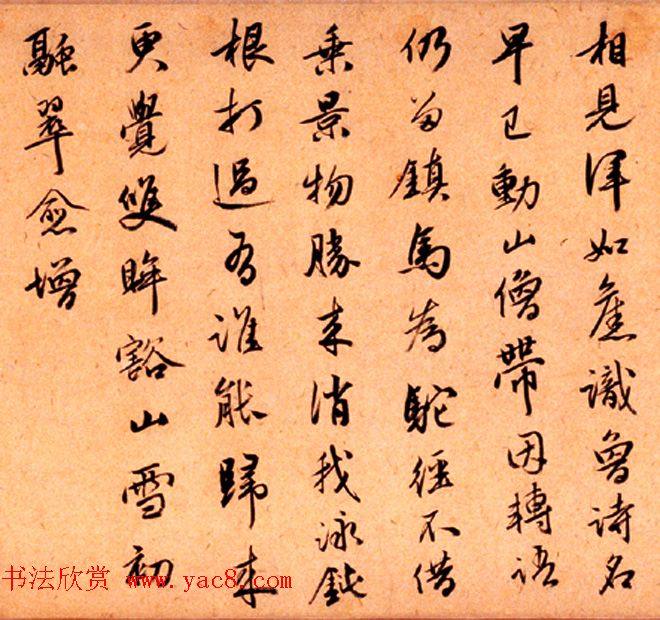 相見渾如舊識曾詩名
早已動山僧帶因轉語
仍留鎮馬為駝經不借
乘景物勝來消我詠鈍
根打過有誰能歸來
更覺雙眸豁山雪初
融翠愈增
书法欣赏 www.yac8.com